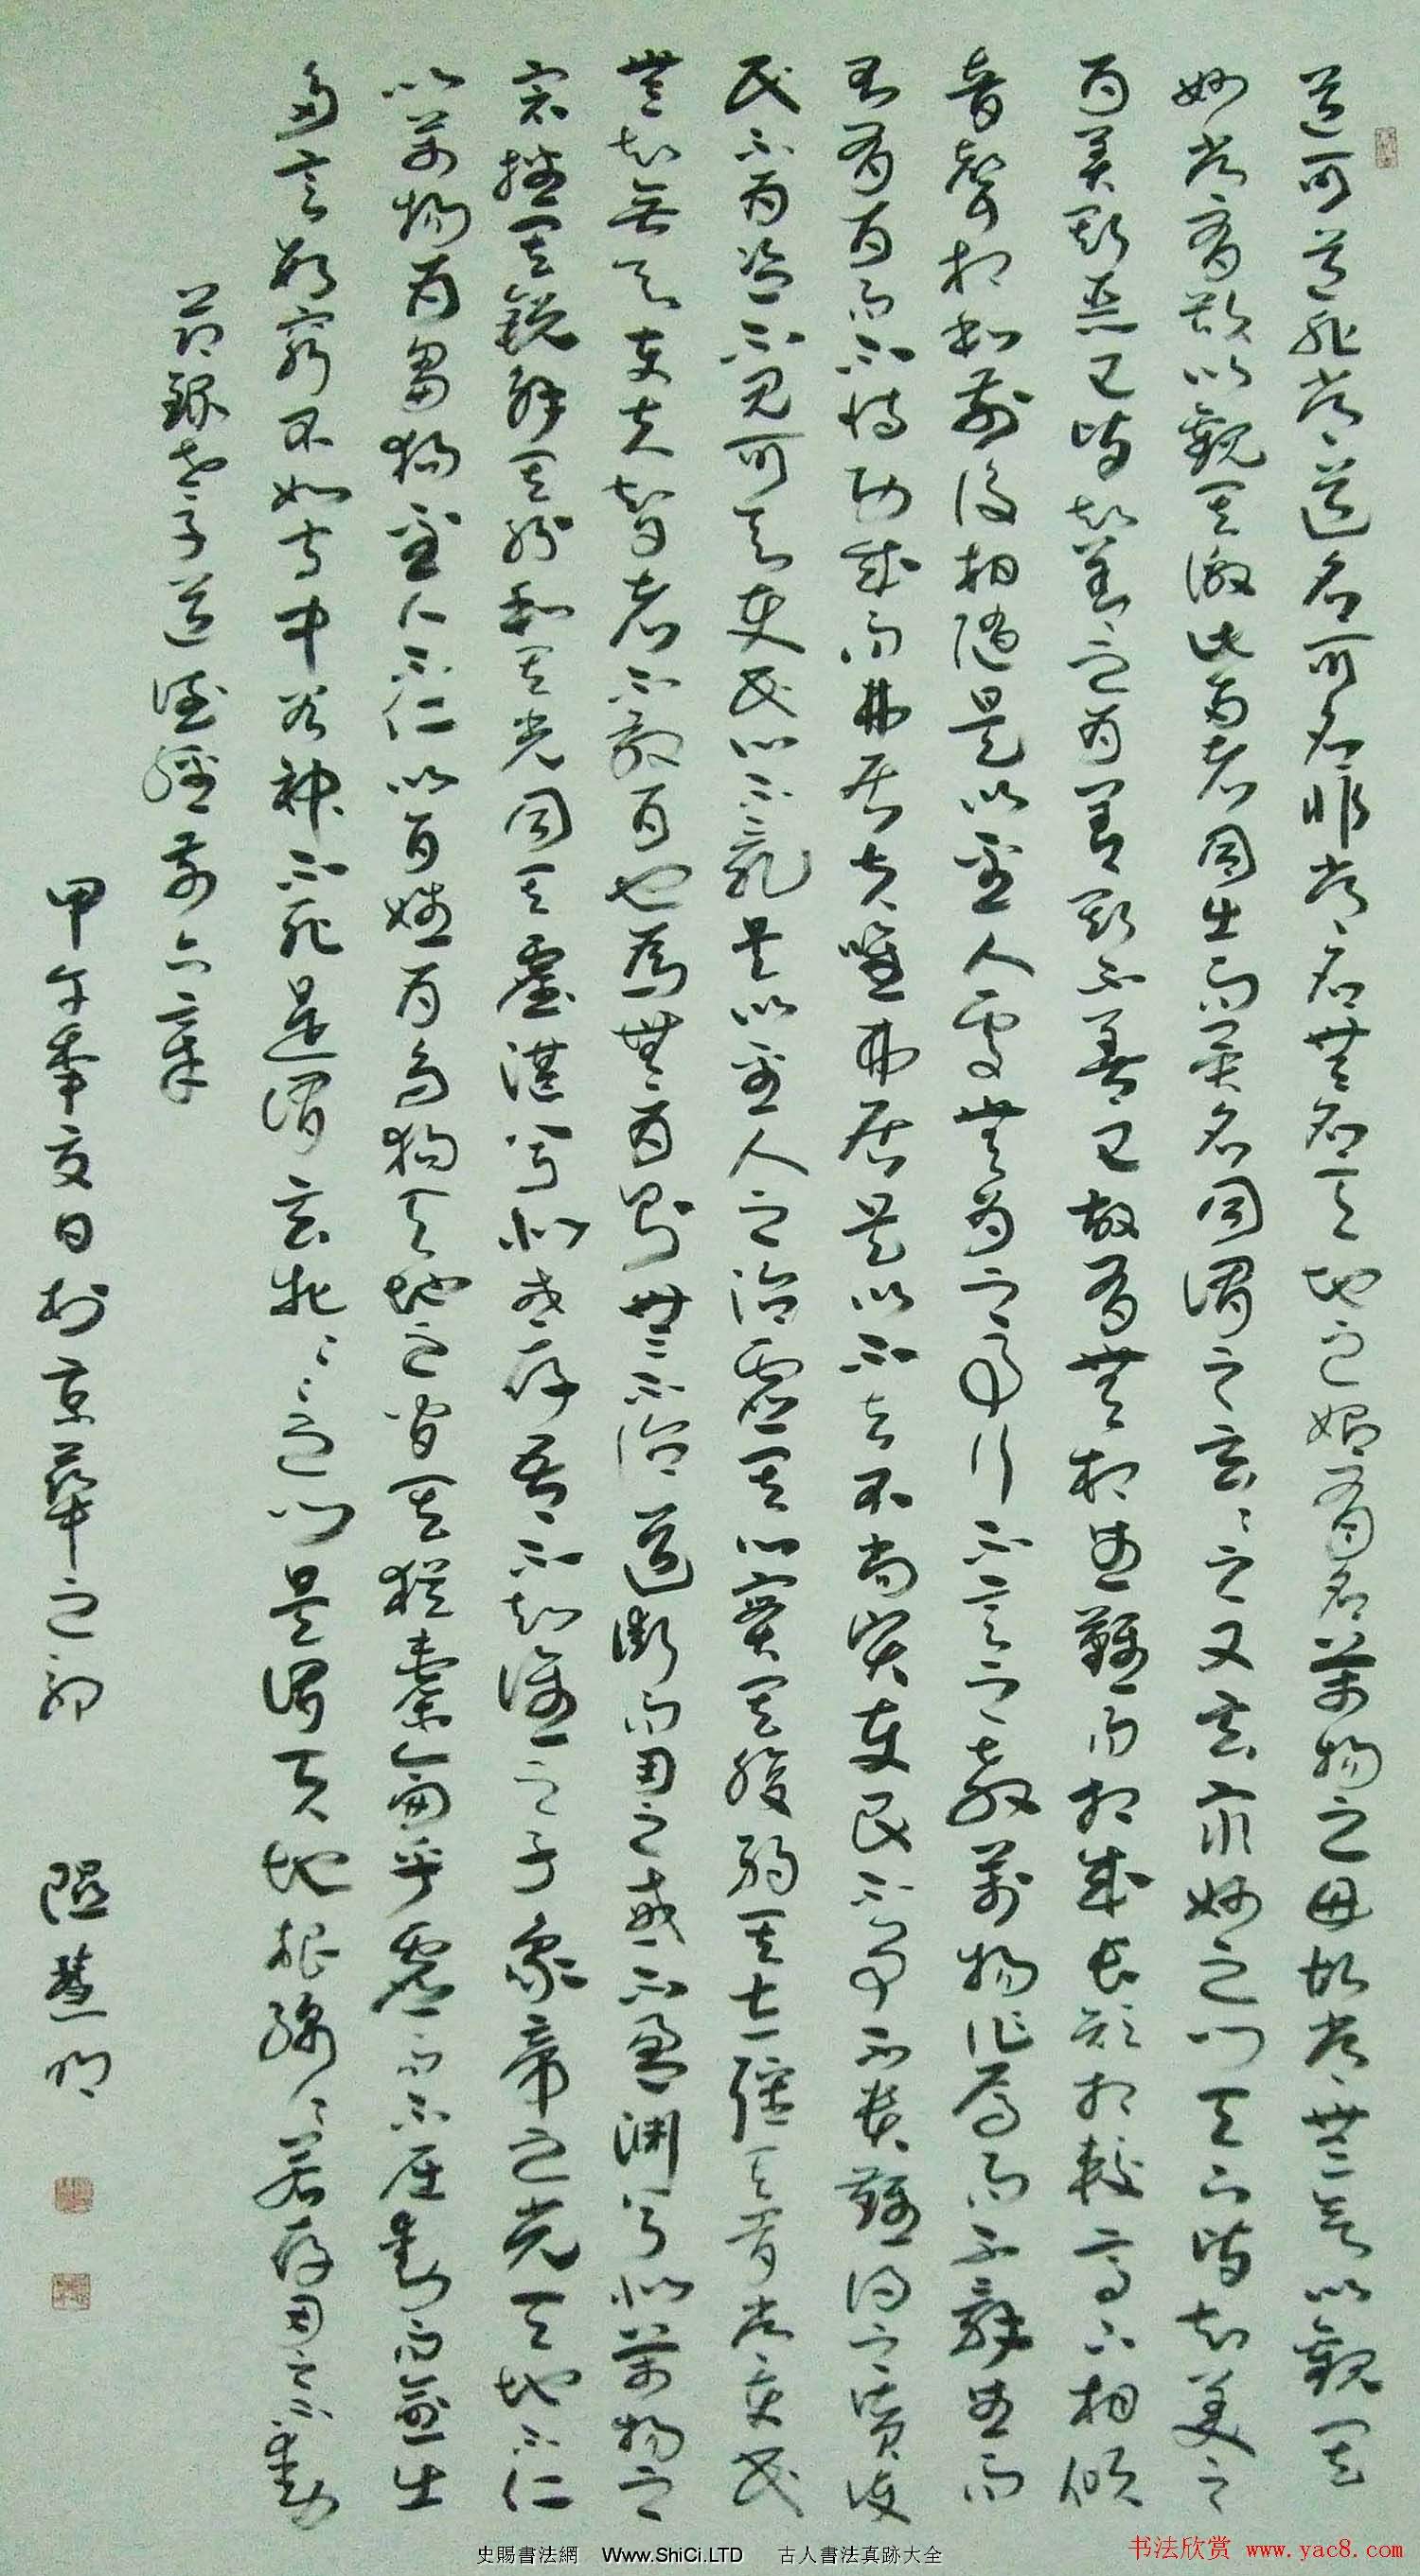 道可道非常道名可名非常名無名天地之始有名萬物之母故常無欲以觀其
妙常有欲以觀其徼此兩者同出而異名同謂之玄玄之又玄眾妙之門天下皆知美之
為美斯惡已皆知善之為善斯不善已故有無相生難易而相成長短相較高下相傾
音聲相和前後相隨是以聖人處無為之事行不言之教萬物作焉而不辭生而
不有為而不恃功成而弗居夫唯弗居是以不去不尚賢使民不爭不貴難得之貨使
民不為盜不見可欲使民心不亂是以聖人之治虛其心實其腹弱其志強其骨常使民
無知無欲使夫智者不敢為也為無為則無不治道沖而用之或不盈淵兮似萬物之
宗挫其銳解其紛和其光同其塵湛兮似或存吾不知誰之子象帝之先天地不仁
以萬物為芻狗聖人不仁以百姓為芻狗天地之間其猶橐籥乎虛而不屈動而愈出
多言數窮不如守中谷神不死是謂玄牝玄牝之門是謂天地根綿綿若存用之不勤
節錄老子道德經前六章
甲午年夏日於京華之卯 隠慧明
史賜書法網 Www.ShiCi.LTD 古人書法真跡大全
书法欣赏 www.yac8.com